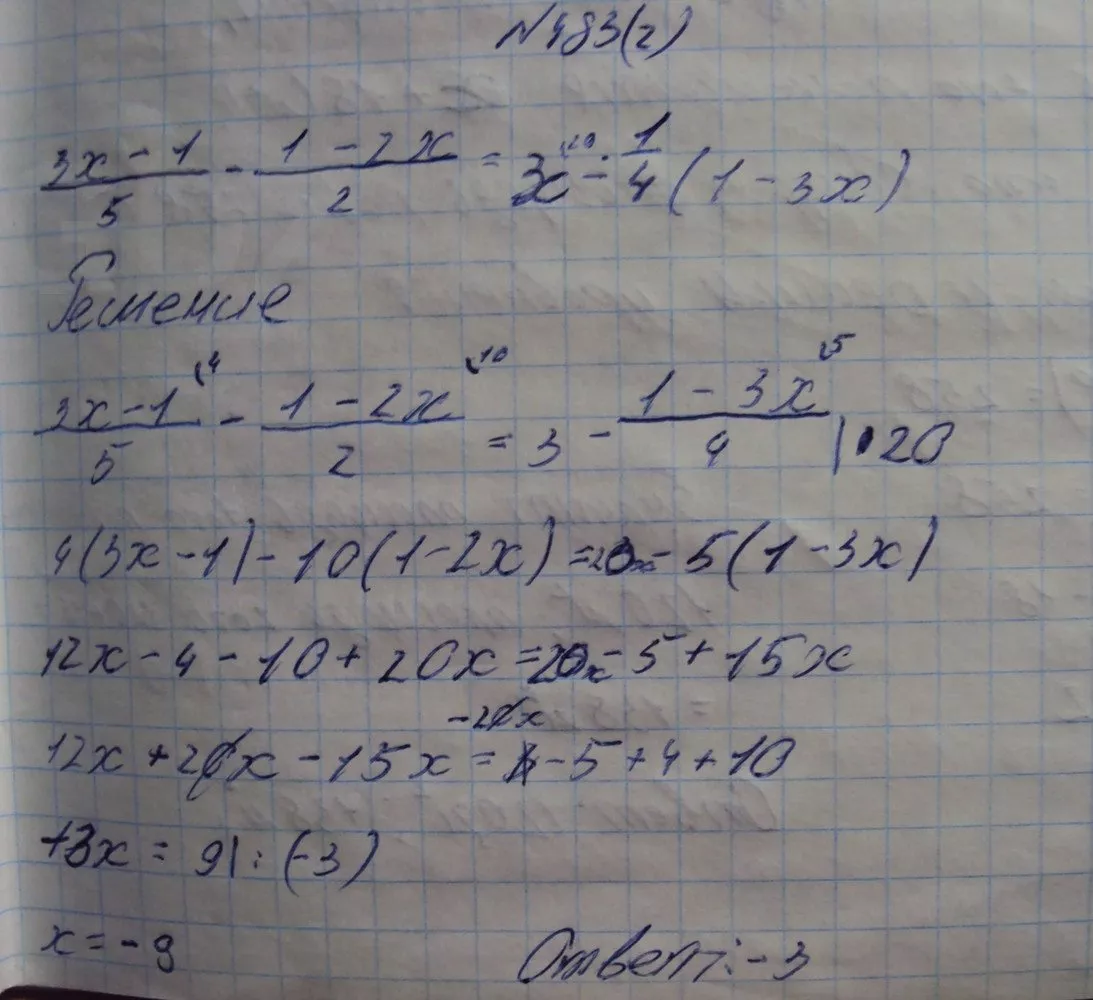 N 483(г)
(3x - 1)/5 - (1 - 2x)/2 = 3x - 1/4 (1 - 3x)
Решение
(3x - 1)/5 - (1 - 2x)/2 = 3 - (1 - 3x)/4 | · 20
4(3x - 1) - 10(1 - 2x) = 20x - 5(1 - 3x)
12x - 4 - 10 + 20x = 20x - 5 + 15x
12x + 20x - 15x - 20x = -5 + 4 + 10
-3x = 9 | : (-3)
x = -9 Ответ: -3